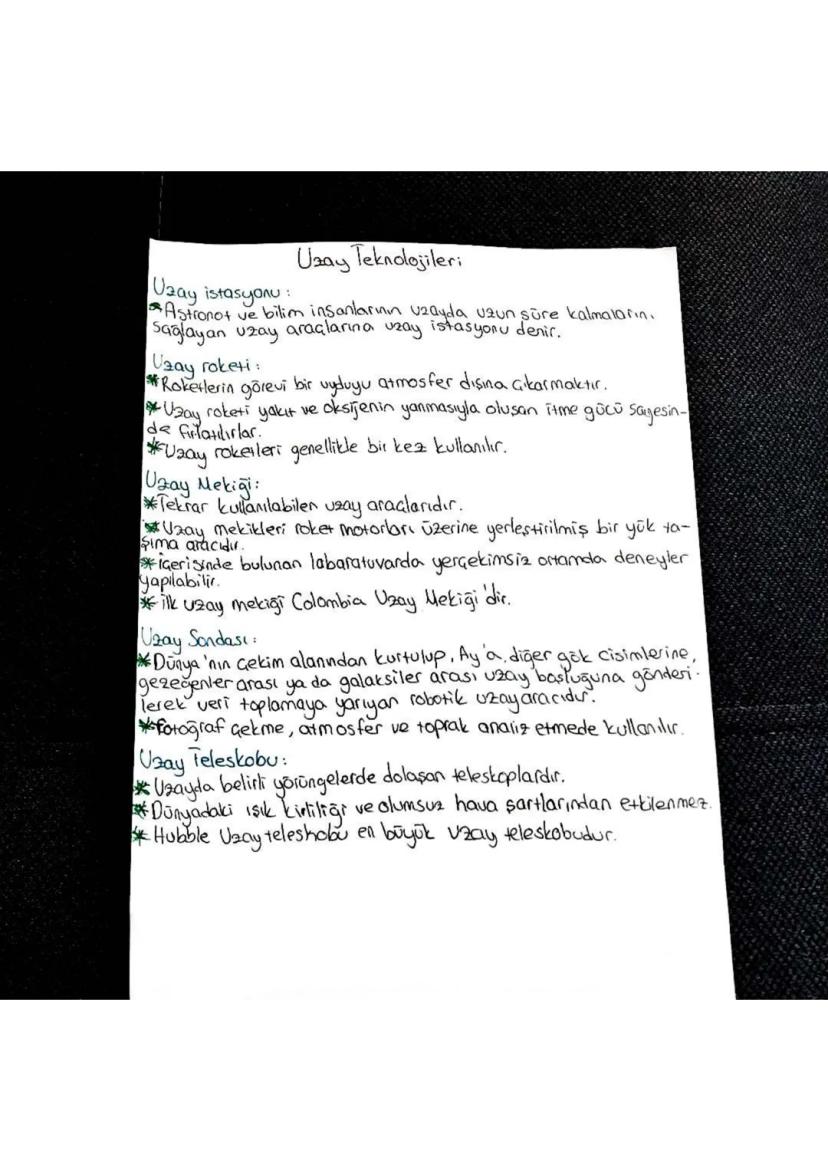 Uzay Teknolojileri
Uzay istasyonu:
*Astronot ve bilim insanlarının uzayda uzun süre kalmalarını
sağlayan uzay araçlarına uzay istasyonu denir.
Uzay roketi:
*Roketlerin görevi bir uyduyu atmosfer dışına çıkarmaktır.
*Uzay roketi yakıt ve oksijenin yanmasıyla oluşan itme gücü sayesin-
de fırlatılırlar.
*Uzay roketleri genellikle bir kez kullanılır.
Uzay Mekiği:
*Tekrar kullanılabilen uzay araçlarıdır.
*Uzay mekikleri roket motorları üzerine yerleştirilmiş bir yük ta-
şıma aracıdır.
*içerisinde bulunan labaratuvarda yerçekimsiz ortamda deneyler
yapılabilir.
*ilk uzay mekiği Colombia Uzay Mekiği'dir.
Uzay Sondası:
*Dünya'nın çekim alanından kurtulup, Ay'a, diğer gök cisimlerine,
gezegenler arası ya da galaksiler arası uzay boşluğuna gönderi-
lerek veri toplamaya yarıyan robotik uzay aracıdır.
*fotoğraf çekme, atmosfer ve toprak analiz etmede kullanılır.
Uzay Teleskobu:
*Uzayda belirli yörüngelerde dolaşan teleskoplardır.
*Dünyadaki ışık kirliliği ve olumsuz hava şartlarından etkilenmez.
*Hubble Uzay teleskobu en büyük uzay teleskobudur.